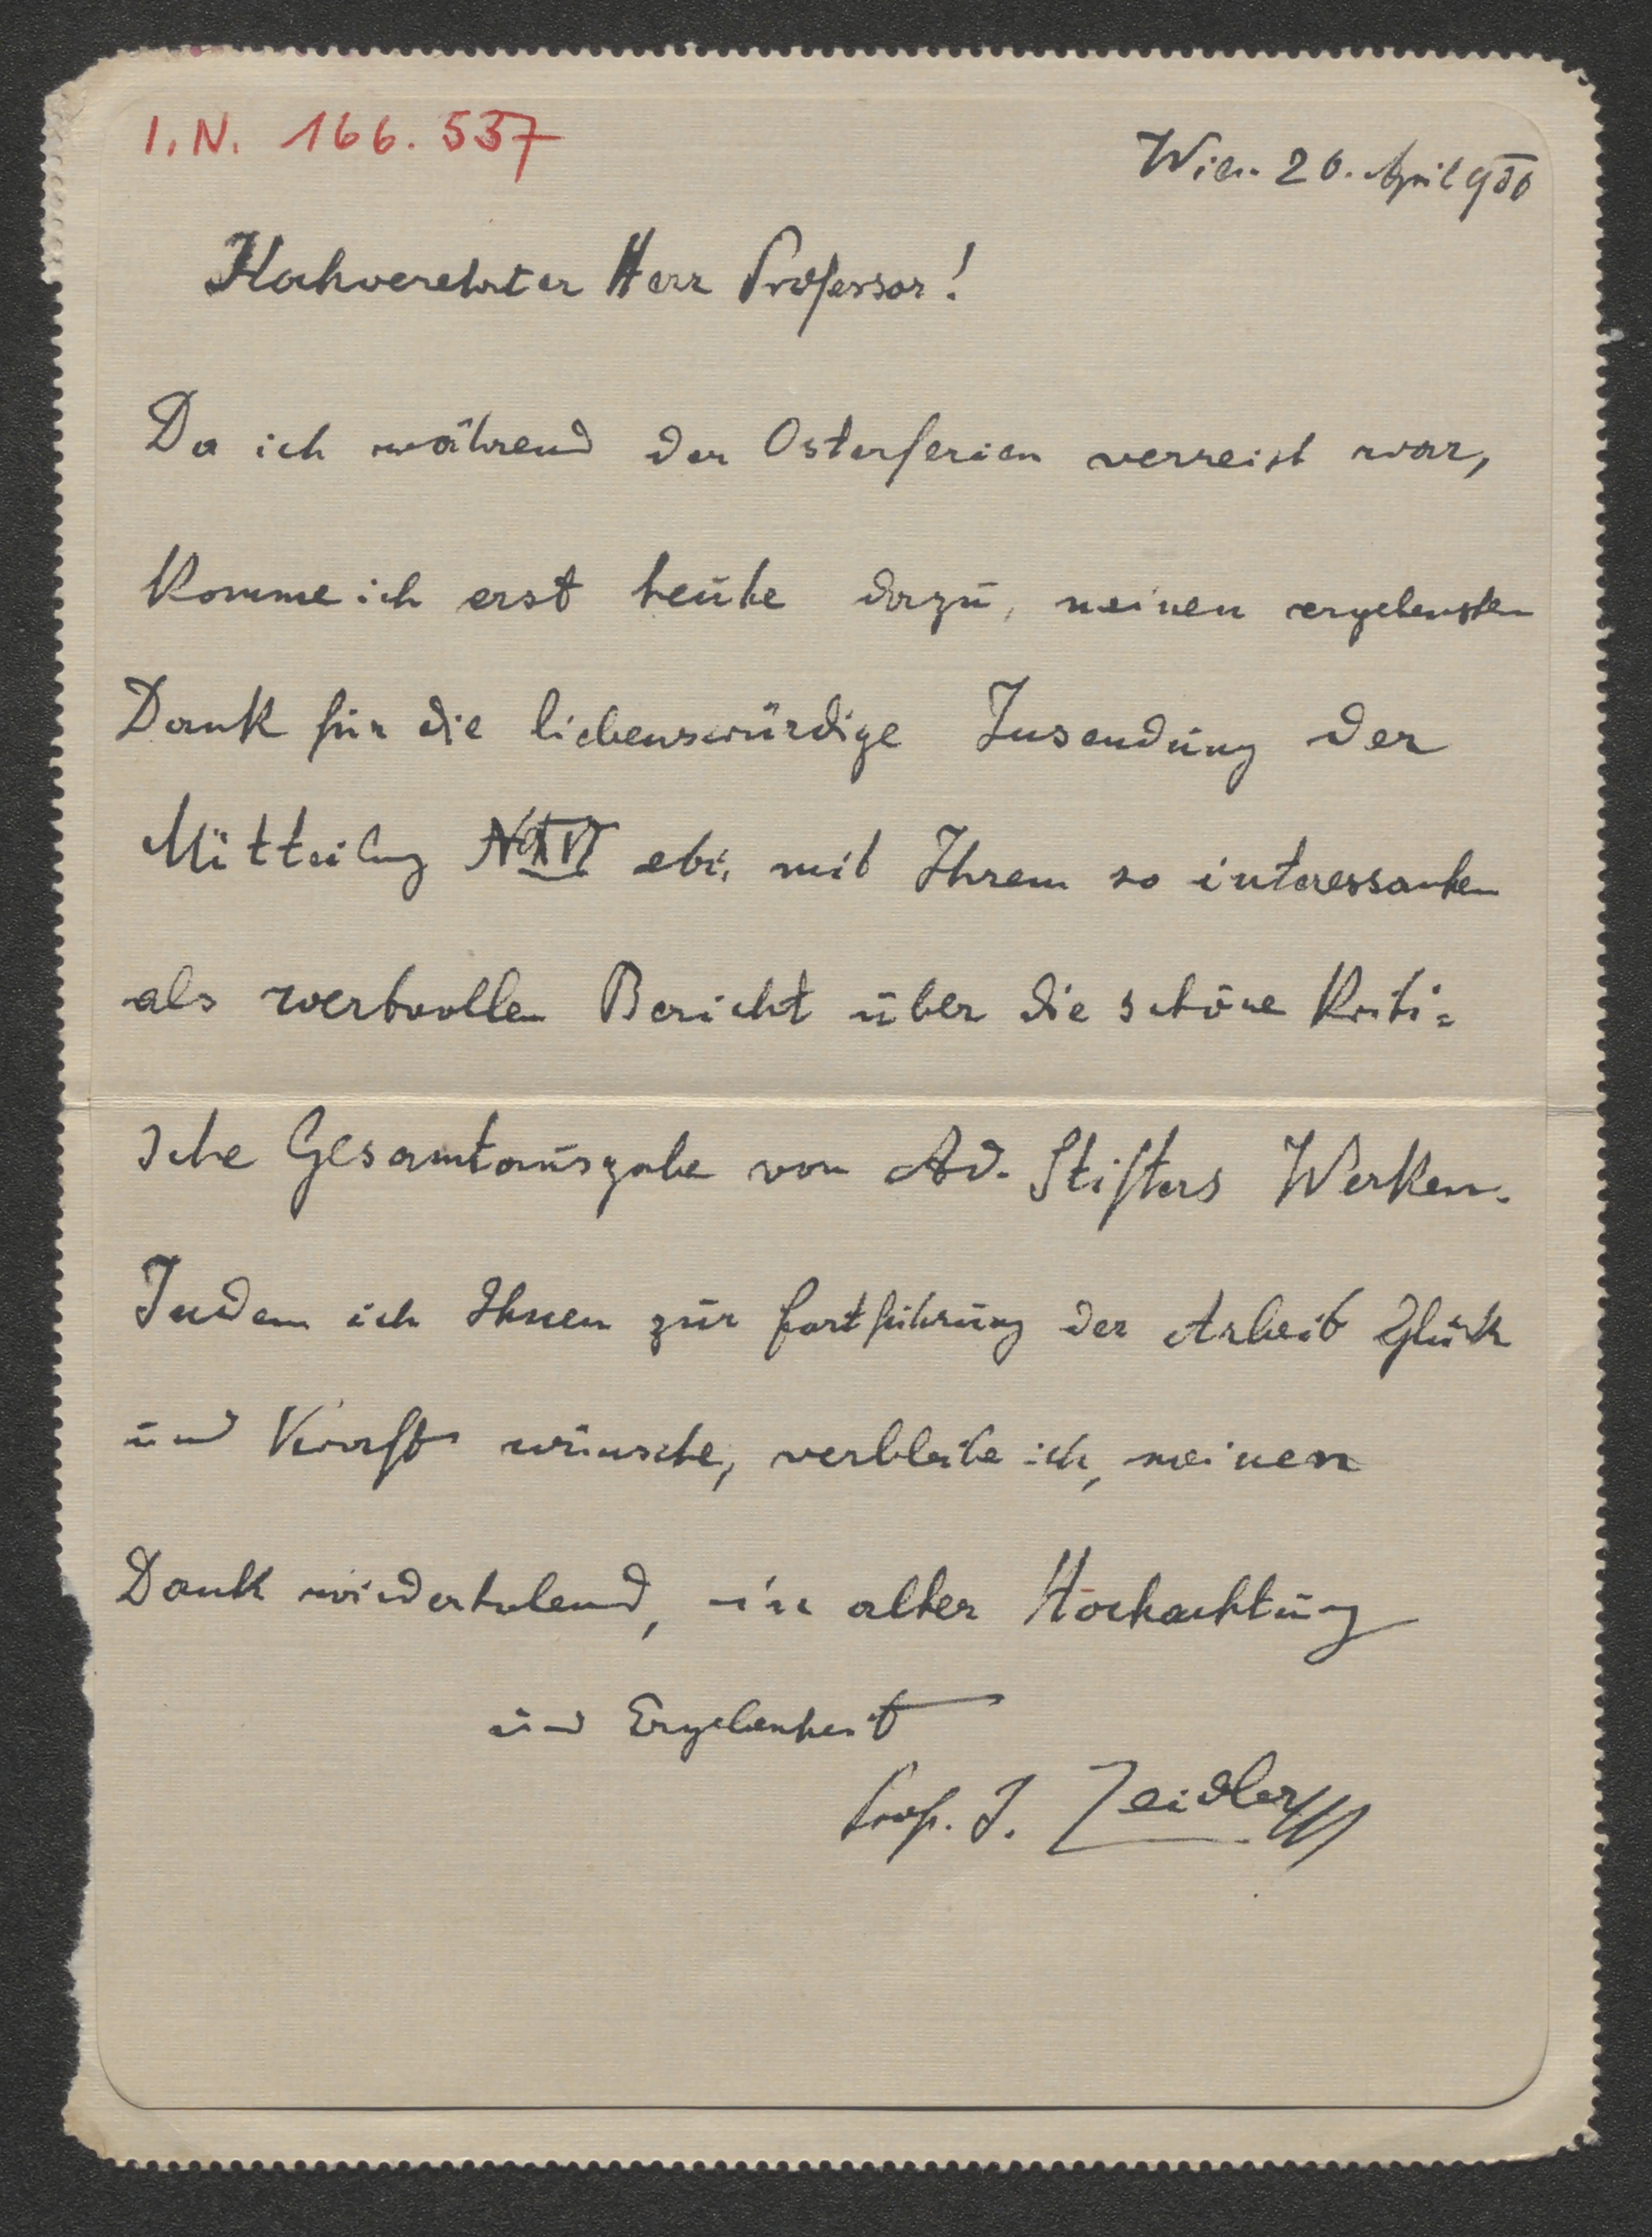 I.N. 166.537
Wien 26. April 906
Hochverehrter Herr Professor!
Da ich während der Osterferien verreist war,
komme ich erst heute dazu, meinen ergebensten
Dank für die liebenswürdige Zusendung der
Mitteilung mit Ihrem so interessanten
als wertvollen Bericht über die schöne Kriti=
sche Gesamtausgabe von Ad. Stifters Werken.
Indem ich Ihnen zur Fortführung der Arbeit Glück
und Kraft wünsche, verbleibe ich, meinen
Dank wiederholend, in alter Hochachtung
und Ergebenheit
Prof. J. Zeidler